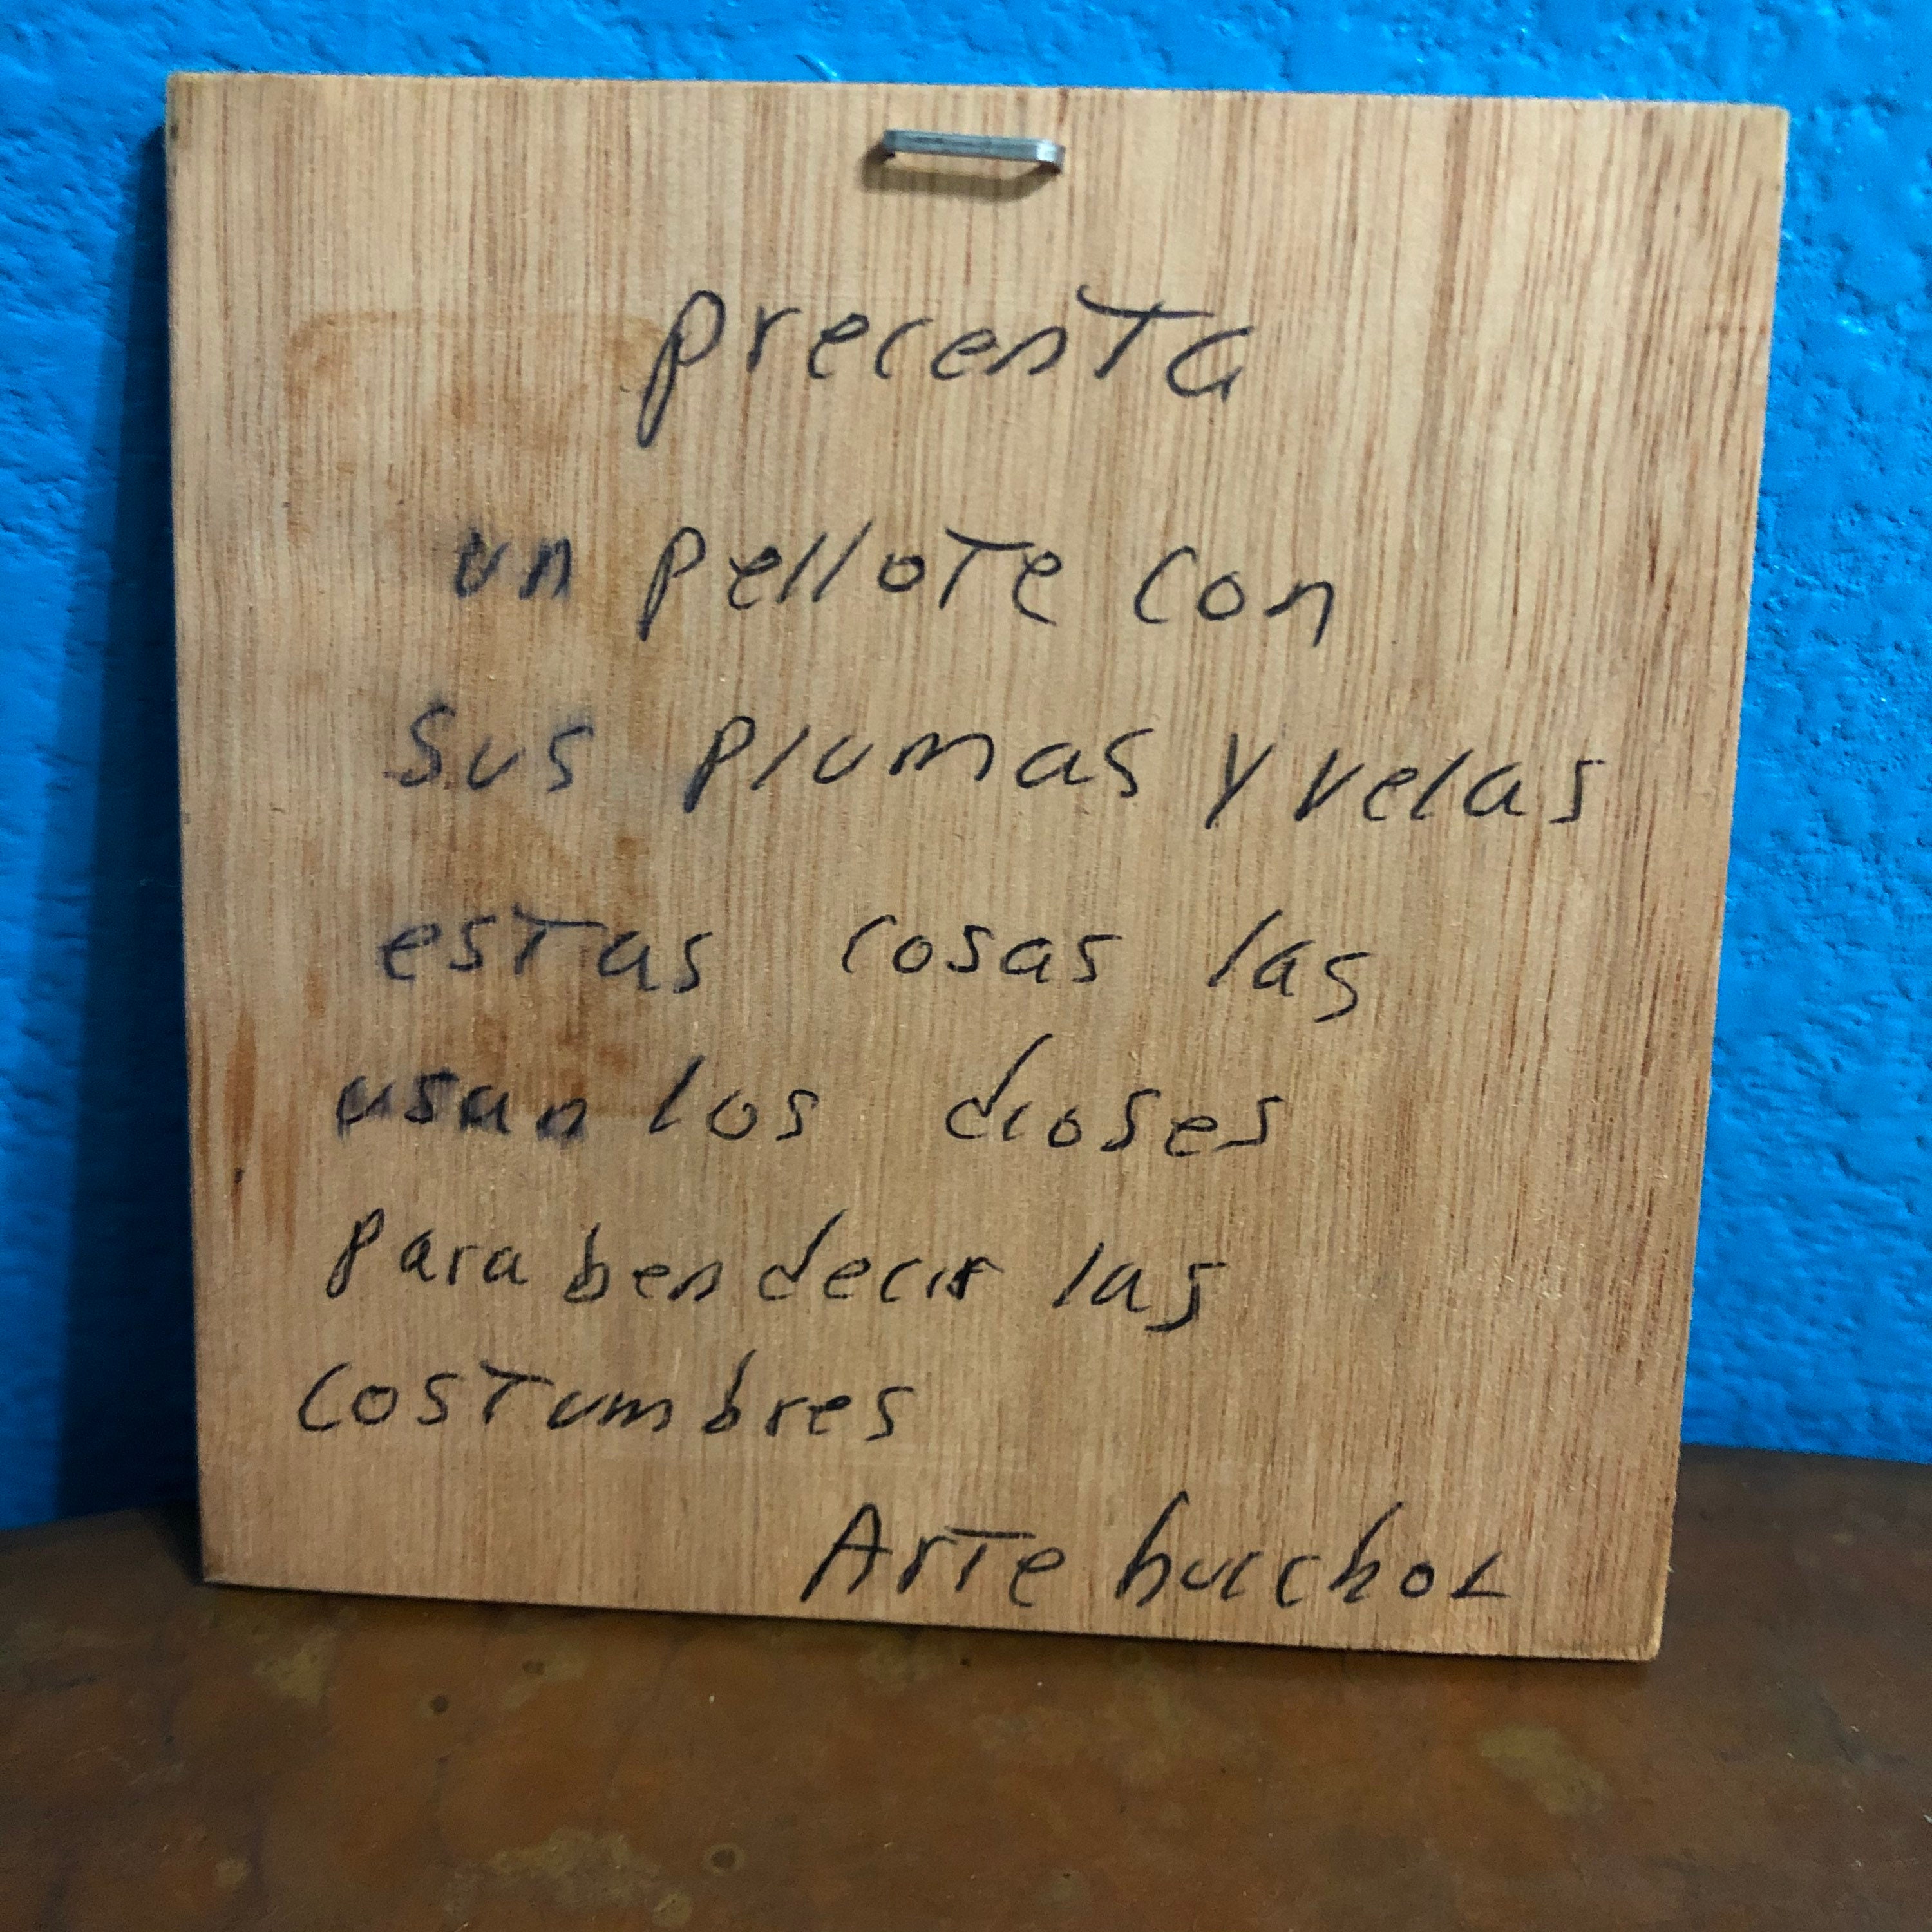 precenta
un pellote con
sus plumas y velas
estas cosas las
usan los dioses
para bendecir las
costumbres
Arte huichoL